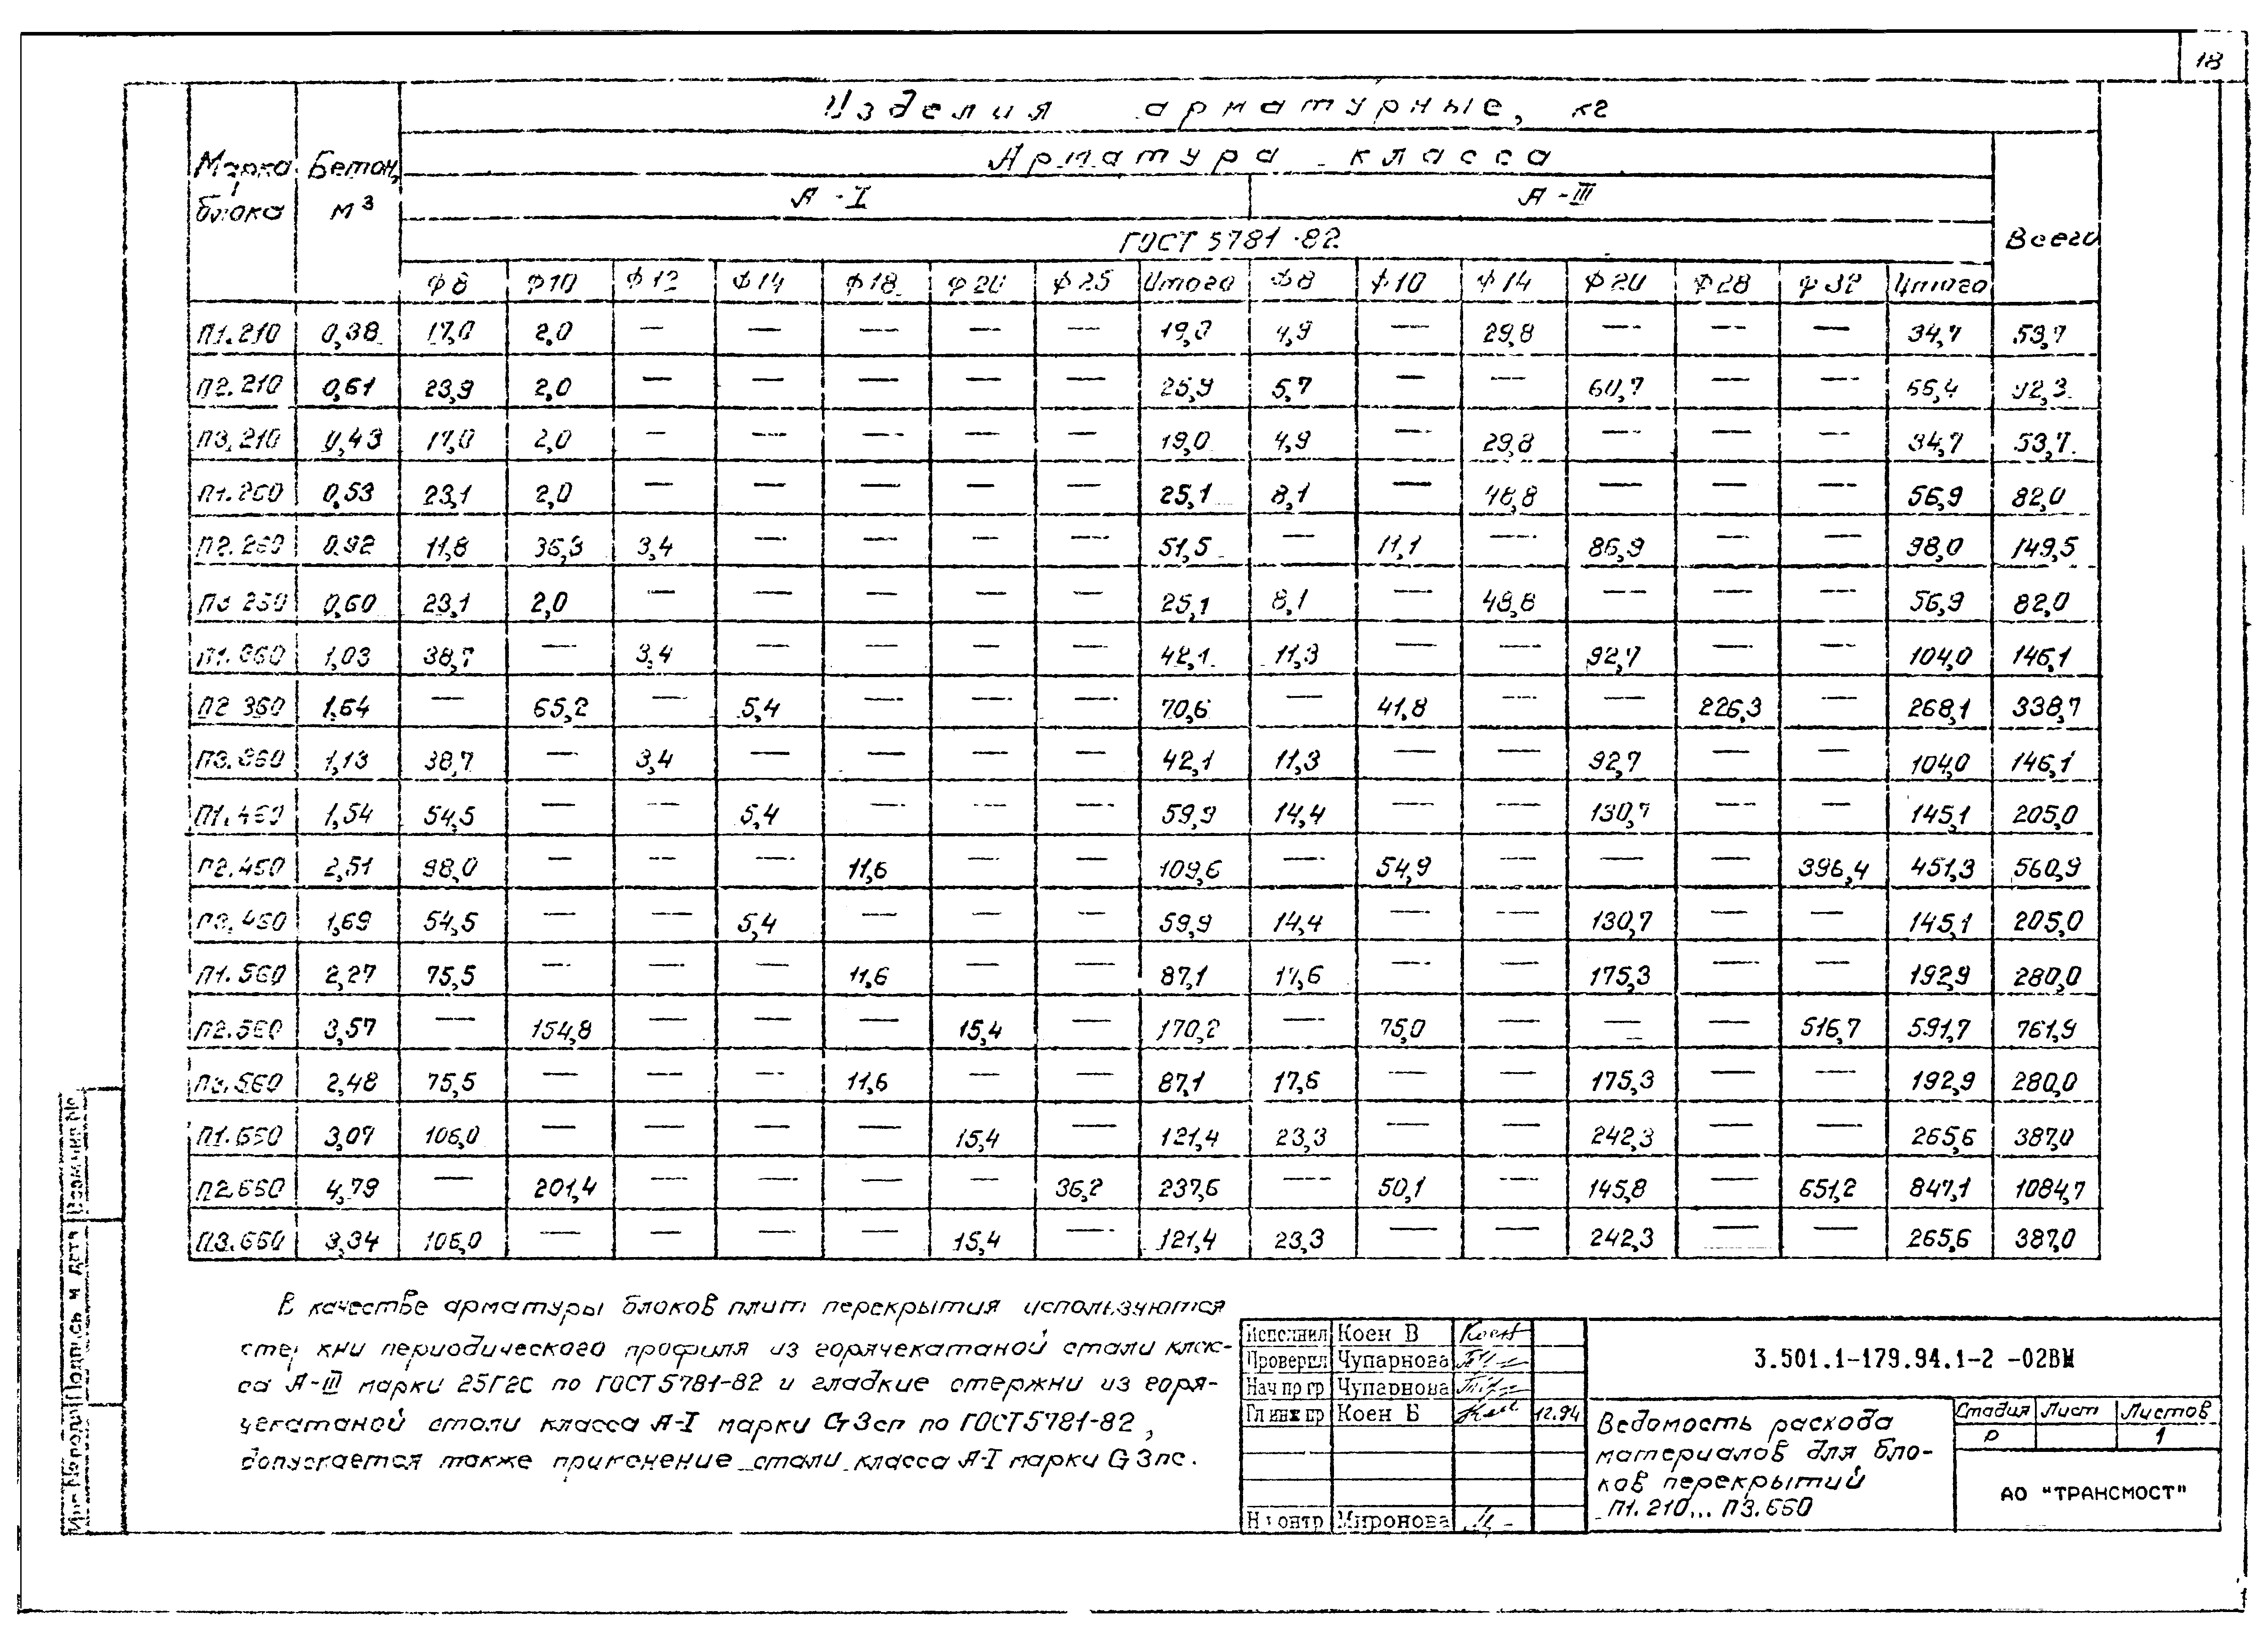 18
Изделия арматурные, кг
Марка блока
Бетон, м³
Арматура класса
Всего
А-I А-III
ГОСТ 5781-82
Ф8 Ф10 Ф12 Ф14 Ф18 Ф20 Ф25 Итого Ф8 Ф10 Ф14 Ф20 Ф28 Ф32 Итого
П1.210 0,38 17,0 2,0 — — — — — 19,0 4,9 — 29,8 — — — 34,7 53,7
П2.210 0,61 23,9 2,0 — — — — — 25,9 5,7 — — 60,7 — — 66,4 92,3
П3.210 0,43 17,0 2,0 — — — — — 19,0 4,9 — 29,8 — — — 34,7 53,7
П1.260 0,53 23,1 2,0 — — — — — 25,1 8,1 — 48,8 — — — 56,9 82,0
П2.260 0,92 11,8 36,3 3,4 — — — — 51,5 — 11,1 — 86,9 — — 98,0 149,5
П3 260 0,60 23,1 2,0 — — — — — 25,1 8,1 — 48,8 — — — 56,9 82,0
П1.360 1,03 38,7 — 3,4 — — — — 42,1 11,3 — — 92,7 — — 104,0 146,1
П2 360 1,64 — 65,2 — 5,4 — — — 70,6 — 41,8 — — 226,3 — 268,1 338,7
П3.360 1,13 38,7 — 3,4 — — — — 42,1 11,3 — — 92,7 — — 104,0 146,1
П1.460 1,54 54,5 — — 5,4 — — — 59,9 14,4 — — 130,7 — — 145,1 205,0
П2.460 2,51 98,0 — — — 11,6 — — 109,6 — 54,9 — — — 396,4 451,3 560,9
П3.460 1,69 54,5 — — 5,4 — — — 59,9 14,4 — — 130,7 — — 145,1 205,0
П1.560 2,27 75,5 — — — 11,6 — — 87,1 17,6 — — 175,3 — — 192,9 280,0
П2.560 3,57 — 154,8 — — — 15,4 — 170,2 — 75,0 — — — 516,7 591,7 761,9
П3.560 2,48 75,5 — — — 11,6 — — 87,1 17,6 — — 175,3 — — 192,9 280,0
П1.660 3,07 106,0 — — — — 15,4 — 121,4 23,3 — — 242,3 — — 265,6 387,0
П2.660 4,79 — 201,4 — — — — 36,2 237,6 — 50,1 — 145,8 — 651,2 847,1 1084,7
П3.660 3,34 106,0 — — — — 15,4 — 121,4 23,3 — — 242,3 — — 265,6 387,0
В качестве арматуры блоков плит перекрытия используются
стержни периодического профиля из горячекатаной стали клас-
са А-III марки 25Г2С по ГОСТ 5781-82 и гладкие стержни из горя-
чекатаной стали класса А-I марки Ст3сп по ГОСТ 5781-82,
допускается также применение стали класса А-I марки Ст3пс.
Исполнил Коен В Коен
Проверил Чупарнова
Нач пр гр Чупарнова
Гл инж пр Коен Б 12.94
Н контр Миронова
3.501.1-179.94.1-2 -02ВМ
Ведомость расхода
материалов для бло-
ков перекрытий
П1.210... П3.660
Стадия Лист Листов
Р 1
АО "ТРАНСМОСТ"
Инв № подл Подпись и дата Взам инв №